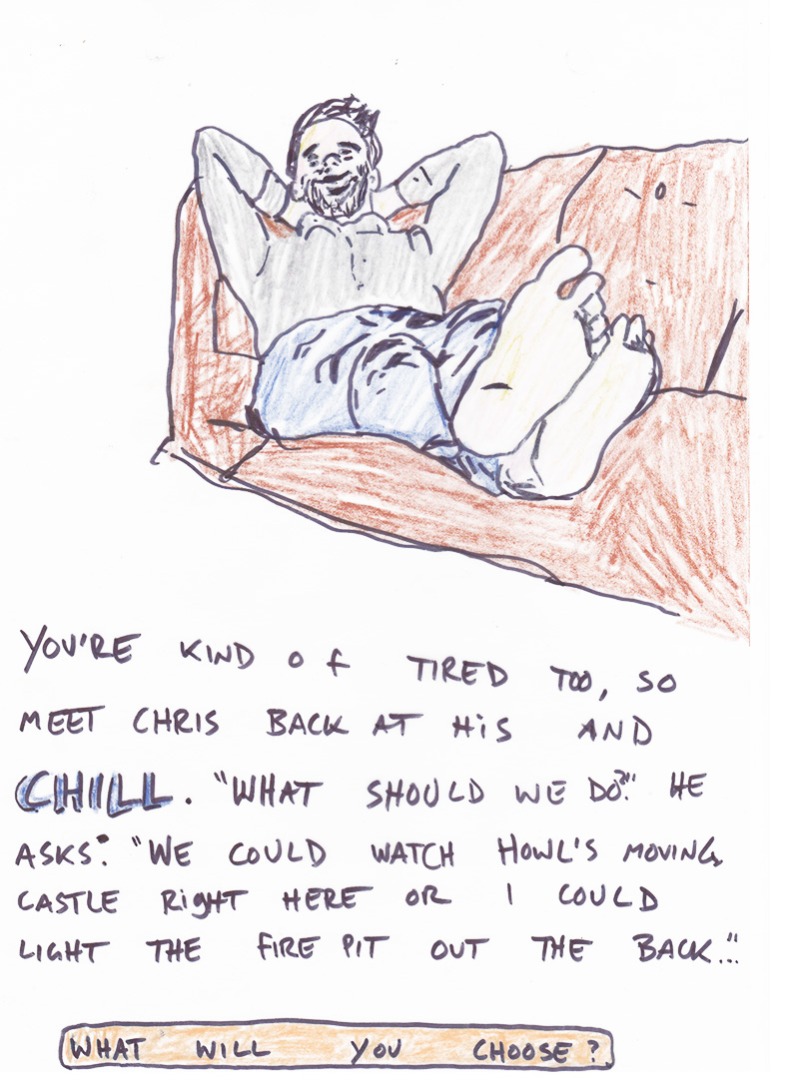 YOU'RE KIND OF TIRED TOO, SO
MEET CHRIS BACK AT HiS AND
CHILL. "WHAT SHOULD WE DO?" HE
ASKS. "WE COULD WATCH HOWL'S MOVING
CASTLE RigHT HERE OR I COULD
LIGHT THE FIRE PIT OUT THE BACK."
WHAT WILL YOU CHOOSE?